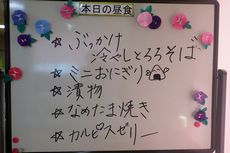 本日の昼食
☆ぶっかけ
冷やしとろろそば
☆ミニおにぎり
☆漬物
☆なめたま焼き
☆カルピスゼリー